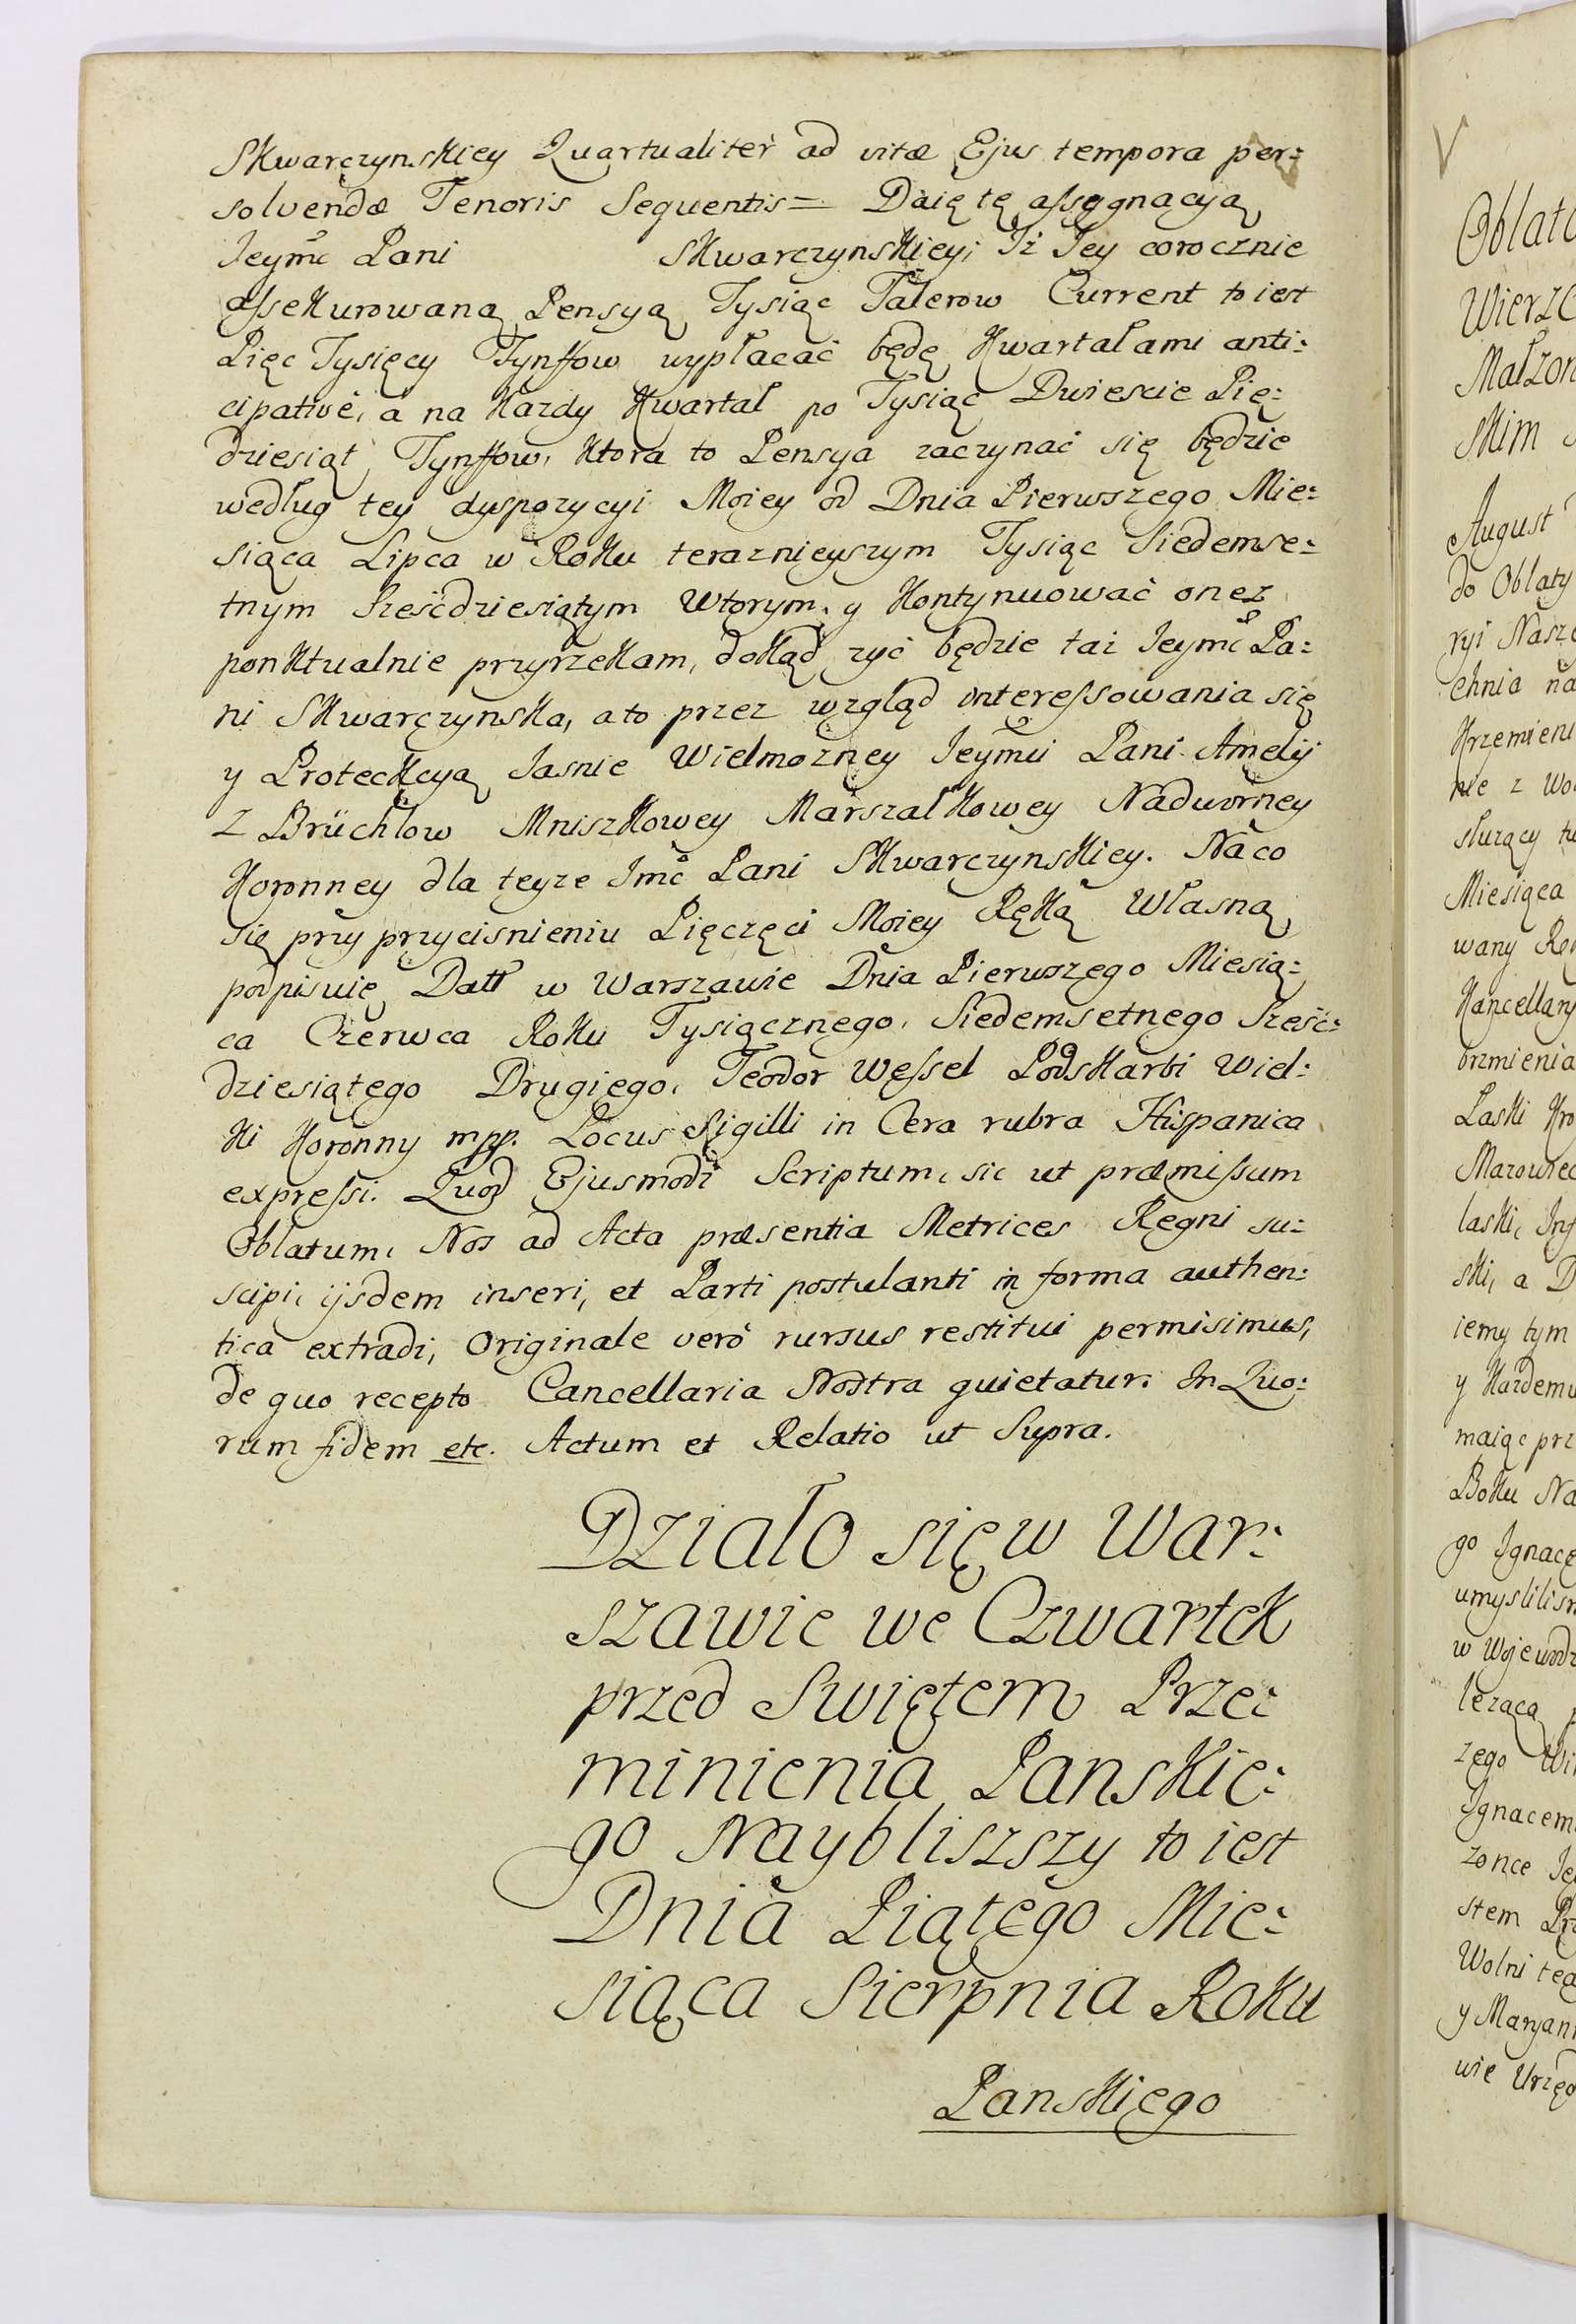 Skwarczynskiey Quartualiter ad vitæ Ejus tempora per:
solvendæ Tenoris Sequentis= Daię tę assygnacyą
Jeymc Pani Skwarczynskiey; Iż Jey corocznie
assekurowaną Pensyą Tysiąc Talerow Current to iest
Pięc Tysięcy Tynffow wypłacać będę Kwartałami anti:
cipativè, a na Kazdy Kwartał po Tysiąc Dwiescie Pię:
dziesiąt Tynffow, Ktora to Pensya zaczynać się będzie
według tey dyspozycyi Moiey od Dnia Pierwszego Mie:
siąca Lipca w Roku teraznieyszym Tysiąc Siedemse:
tnym Sześćdziesiątym Wtorym, y Kontynuować onez
ponktualnie przyrzekam, dokąd zyć będzie taz Jeymc Pa:
ni Skwarczynska, a to przez wzgląd interessowania się
y Proteckcyą Jasnie Wielmozney Jeymci Pani Amelij
z Brüchlow Mniszkowey Marszałkowey Nadworney
Koronney dla teyze Jmc Pani Skwarczynskiey. Na co
się przy przycisnieniu Pięczęci Moiey Ręką Własną
podpisuię Datt w Warszawie Dnia Pierwszego Miesią:
ca Czerwca Roku Tysiącznego, Siedemsetnego Sześć:
dziesiątego Drugiego, Teodor Wessel Podskarbi Wiel:
ki Koronny mpp. Locus Sigilli in Cera rubra Hispanica
expressi. Quod Ejusmodi Scriptum, sic ut præmissum
Oblatum, Nos ad Acta præsentia Metrices Regni su:
scipi, ijsdem inseri, et Parti postulanti in forma authen:
tica extradi, Originale verò rursus restitui permisimus,
de quo recepto Cancellaria Nostra quietatur. In Quo:
rum fidem etc. Actum et Relatio ut Supra.
Działo się w War:
szawie we Czwartek
przed Swiętem Prze:
minienia Panskie:
go Naybliszszy to iest
Dnia Piątego Mie:
siąca Sierpnia Roku
Panskiego
Oblata
Wierzc
Małzon
Skim
August
do Oblaty
ryi Nasze
chnia na
Krzemieni
nie z Wo
służący tu
Miesiąca
wany Rę
Kancellary
brzmienia
Laski Kro
Mazowiec
laski, Inf
ski, a D
iemy tym
y Kazdemu
maiąc prz
Boku Na
go Ignace
umyslilism
w Wojewodz
lezącą p
zego Wi
Ignacem
zonce Je
stem Prz
Wolni teg
y Maryann
wie Urzęd